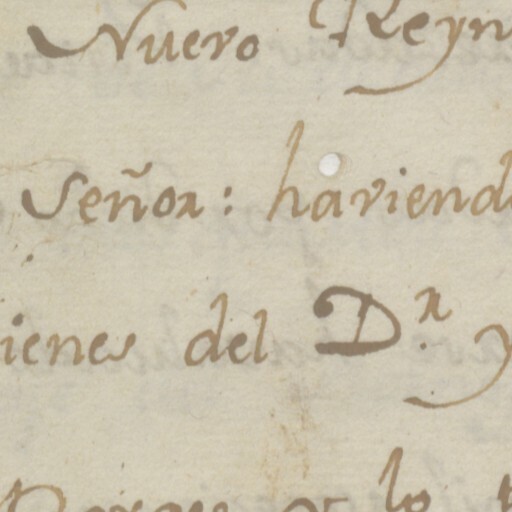 Nuevo Reyn
Señor: haviend
ienes del D.r y
lo